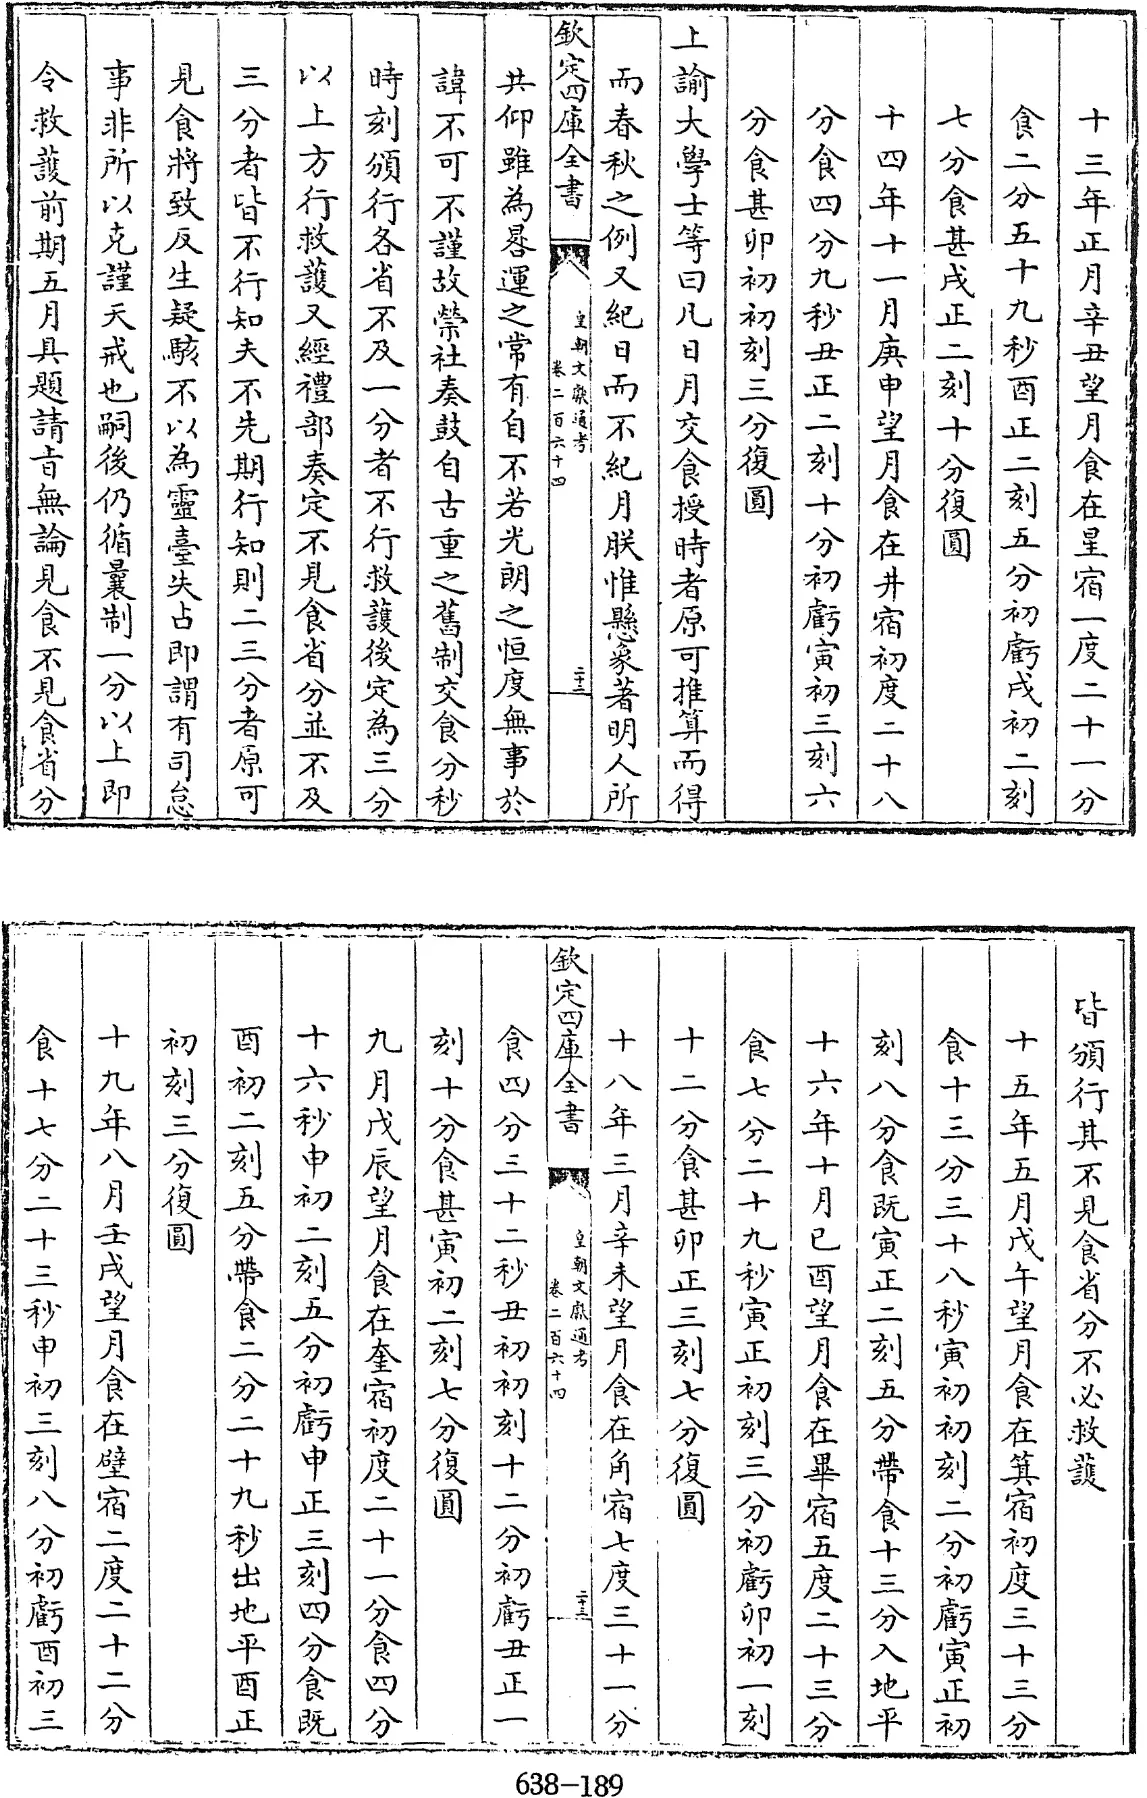 十三年正月辛丑望月食在星宿一度二十一分
食二分五十九秒酉正二刻五分初虧戌初二刻
七分食甚戌正二刻十分復圓
十四年十一月庚申望月食在井宿初度二十八
分食四分九秒丑正二刻十分初虧寅初三刻六
分食甚卯初初刻三分復圓
上諭大學士等曰凡日月交食授時者原可推算而得
而春秋之例又紀日而不紀月朕惟懸象著明人所
欽定四庫全書
皇朝文獻通考
卷二百六十四
二十二
共仰雖為晷運之常有自不若光朗之恒度無事於
諱不可不謹故禜社奏鼓自古重之舊制交食分秒
時刻頒行各省不及一分者不行救護後定為三分
以上方行救護又經禮部奏定不見食省分並不及
三分者皆不行知夫不先期行知則二三分者原可
見食將致反生疑駭不以為靈臺失占即謂有司怠
事非所以克謹天戒也嗣後仍循曩制一分以上即
令救護前期五月具題請旨無論見食不見食省分
皆頒行其不見食省分不必救護
十五年五月戊午望月食在箕宿初度三十三分
食十三分三十八秒寅初初刻二分初虧寅正初
刻八分食既寅正二刻五分帶食十三分入地平
十六年十月己酉望月食在畢宿五度二十三分
食七分二十九秒寅正初刻三分初虧卯初一刻
十二分食甚卯正三刻七分復圓
十八年三月辛未望月食在角宿七度三十一分
欽定四庫全書
皇朝文獻通考
卷二百六十四
二十三
食四分三十二秒丑初初刻十二分初虧丑正一
刻十分食甚寅初二刻七分復圓
九月戊辰望月食在奎宿初度二十一分食四分
十六秒申初二刻五分初虧申正三刻四分食既
酉初二刻五分帶食二分二十九秒出地平酉正
初刻三分復圓
十九年八月壬戌望月食在壁宿二度二十二分
食十七分二十三秒申初三刻八分初虧酉初三
638-189